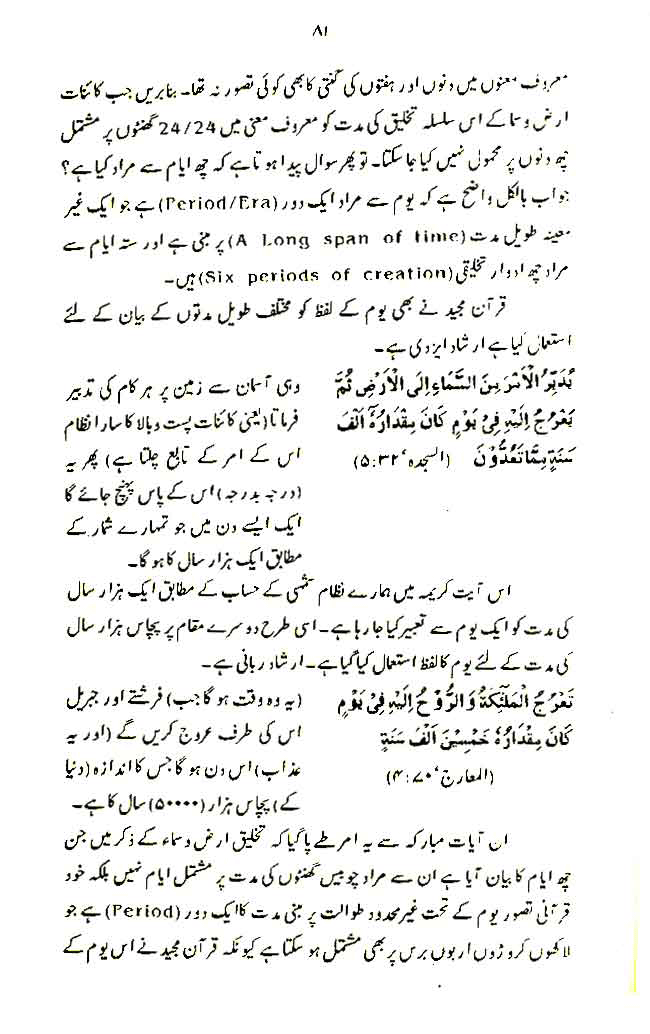 ۸۱
معروف معنوں میں دنوں اور ہفتوں کی گنتی کا بھی کوئی تصور نہ تھا۔ بنابریں جب کائنات
ارض و سما کے اس سلسلہ تخلیق کی مدت کو معروف معنی میں 24/24 گھنٹوں پر مشتمل
چھ دنوں پر محمول نہیں کیا جا سکتا۔ تو پھر سوال پیدا ہوتا ہے کہ چھ ایام سے مراد کیا ہے؟
جواب بالکل واضح ہے کہ یوم سے مراد ایک دور (Period/Era) ہے جو ایک غیر
معینہ طویل مدت (A Long span of time) پر مبنی ہے اور ستہ ایام سے
مراد چھ ادوار تخلیق (Six periods of creation) ہیں۔
قرآن مجید نے بھی یوم کے لفظ کو مختلف طویل مدتوں کے بیان کے لئے
استعمال کیا ہے ارشاد ایزدی ہے۔
يُدَبِّرُ الْأَمْرَ مِنَ السَّمَاءِ إِلَى الْأَرْضِ ثُمَّ
يَعْرُجُ إِلَيْهِ فِي يَوْمٍ كَانَ مِقْدَارُهُ أَلْفَ
سَنَةٍ مِمَّا تَعُدُّونَ (السجدہ ۵:۳۲)
وہی آسمان سے زمین پر ہر کام کی تدبیر
فرماتا (یعنی کائنات پست و بالا کا سارا نظام
اس کے امر کے تابع چلتا ہے) پھر یہ
(درجہ بدرجہ) اس کے پاس پہنچ جائے گا
ایک ایسے دن میں جو تمہارے شمار کے
مطابق ایک ہزار سال کا ہو گا۔
اس آیت کریمہ میں ہمارے نظام شمسی کے حساب کے مطابق ایک ہزار سال
کی مدت کو ایک یوم سے تعبیر کیا جا رہا ہے۔ اسی طرح دوسرے مقام پر پچاس ہزار سال
کی مدت کے لئے یوم کا لفظ استعمال کیا گیا ہے۔ ارشاد ربانی ہے۔
تَعْرُجُ الْمَلٰٓئِكَةُ وَالرُّوْحُ إِلَيْهِ فِي يَوْمٍ
كَانَ مِقْدَارُهُ خَمْسِيْنَ أَلْفَ سَنَةٍ
(المعارج ۴:۷۰)
(یہ وہ وقت ہو گا جب) فرشتے اور جبریل
اس کی طرف عروج کریں گے (اور یہ
عذاب) اس دن ہو گا جس کا اندازہ (دنیا
کے) پچاس ہزار (۵۰۰۰۰) سال کا ہے۔
ان آیات مبارکہ سے یہ امر طے پا گیا کہ تخلیق ارض و سماء کے ذکر میں جن
چھ ایام کا بیان آیا ہے ان سے مراد چوبیس گھنٹوں کی مدت پر مشتمل ایام نہیں بلکہ خود
قرآنی تصور یوم کے تحت غیر محدود طوالت پر مبنی مدت کا ایک دور (Period) ہے جو
لاکھوں کروڑوں اربوں برس پر بھی مشتمل ہو سکتا ہے کیونکہ قرآن مجید نے اس یوم کے